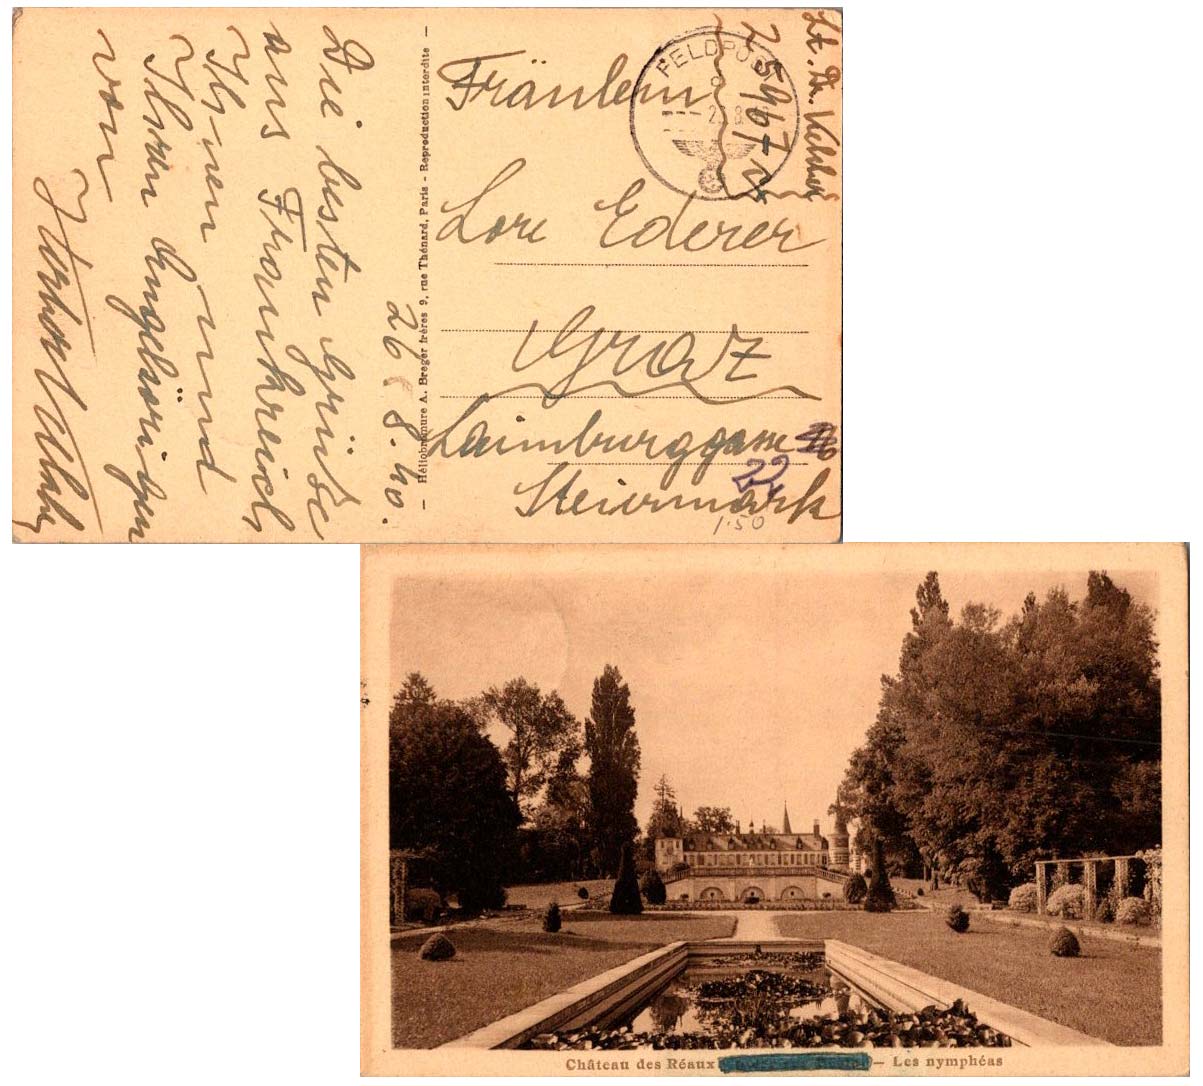 Die besten Grüße
aus Frankreich
Ihnen und
Ihren Angehörigen
von
26.8.40.
— Héliobromure A. Breger frères 9, rue Thénard, Paris - Reproduction interdite —
Lt. Dr.
25967
FELDPOST
Fräulein
Lore Ederer
Graz
Laimburggasse
22
Steiermark
1.50
Château des Réaux — Les nymphéas